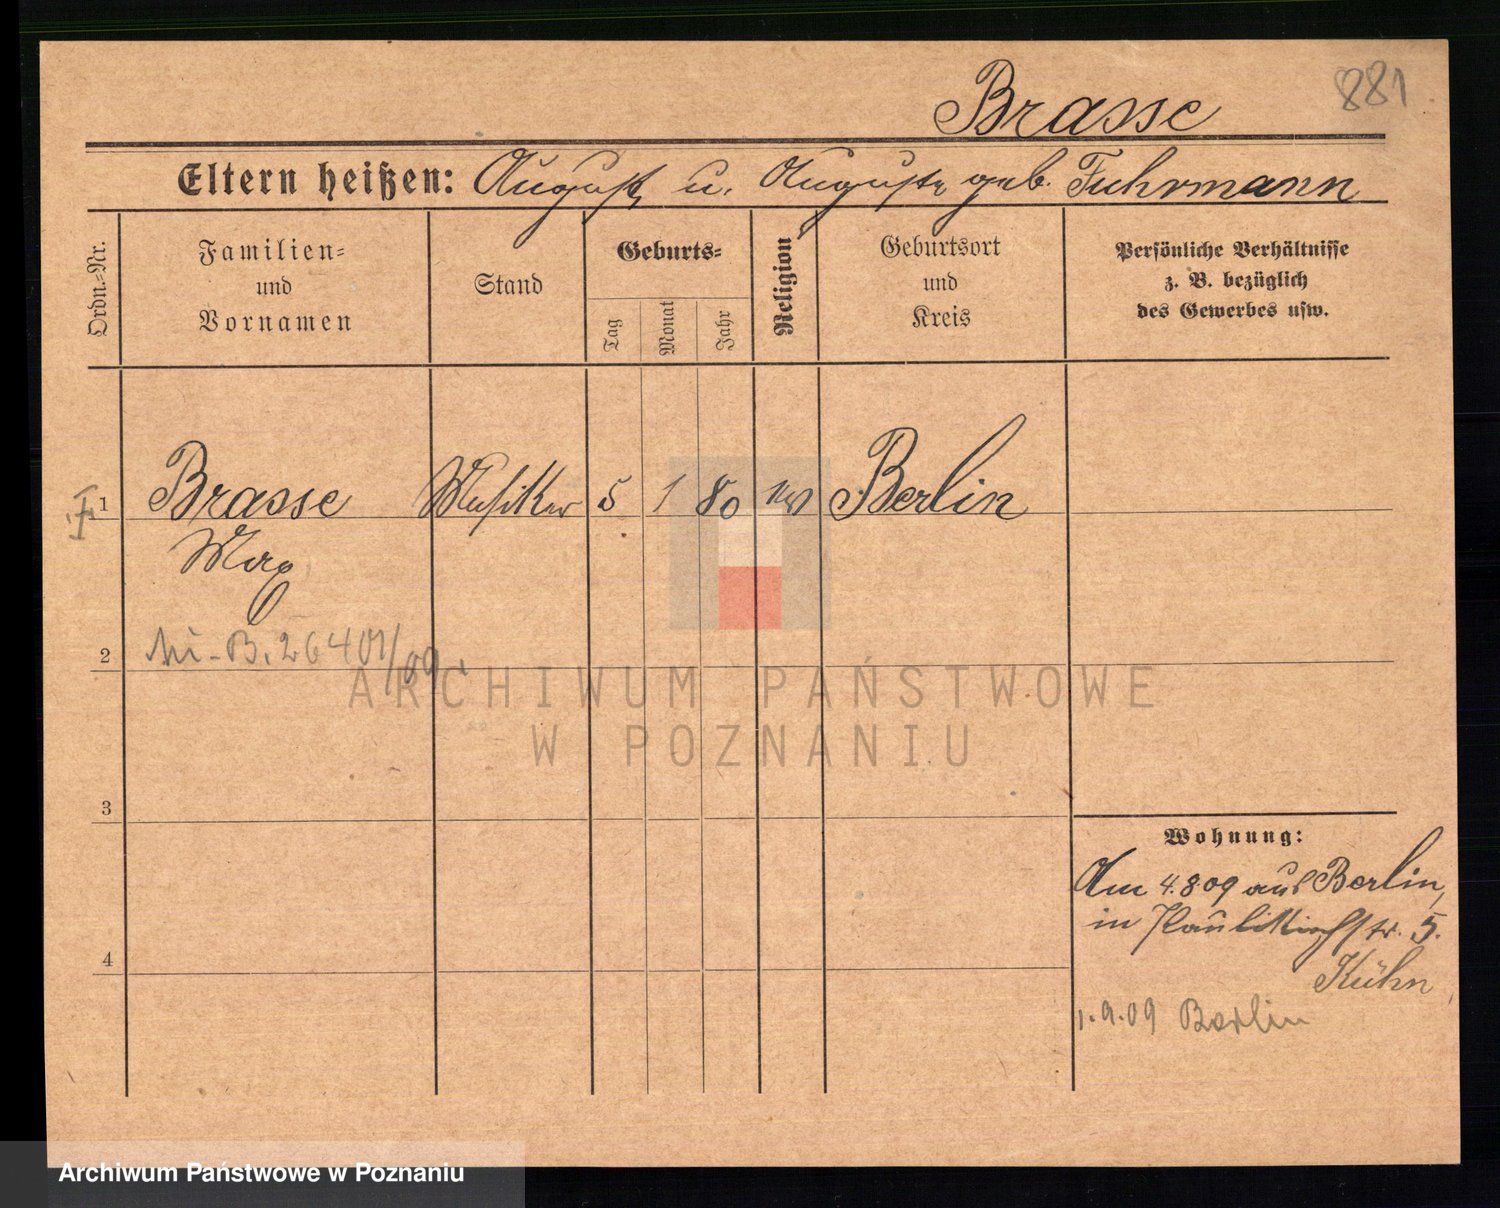 Brasse
881
Eltern heißen: August u. Auguste geb. Fuhrmann
Ordn.-Nr.
Familien-
und
Vornamen
Stand
Geburts-
Tag
Monat
Jahr
Religion
Geburtsort
und
Kreis
Persönliche Verhältnisse
z. B. bezüglich
des Gewerbes usw.
1 Brasse Musiker 5 1 80 ev Berlin
Max
2 B. 26401/09.
3
4
Wohnung:
Am 4.8 09 aus Berlin,
in Paulikirchstr. 5.
Kühn
1.9.09 Berlin
ARCHIWUM PAŃSTWOWE
W POZNANIU
Archiwum Państwowe w Poznaniu